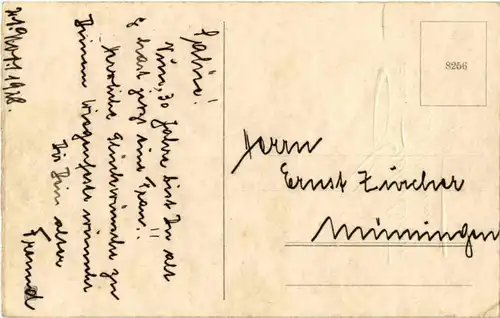 21. Nov. 1918.
Salü!
Nun, 30 Jahre bist Du alt
& hast jetzt eine Frau!!
Herzliche Glückwünsche zu
Deinem Wiegenfeste wünscht
Dir Dein alter
Freund
8256
Herrn
Ernst Zürcher
Münsingen